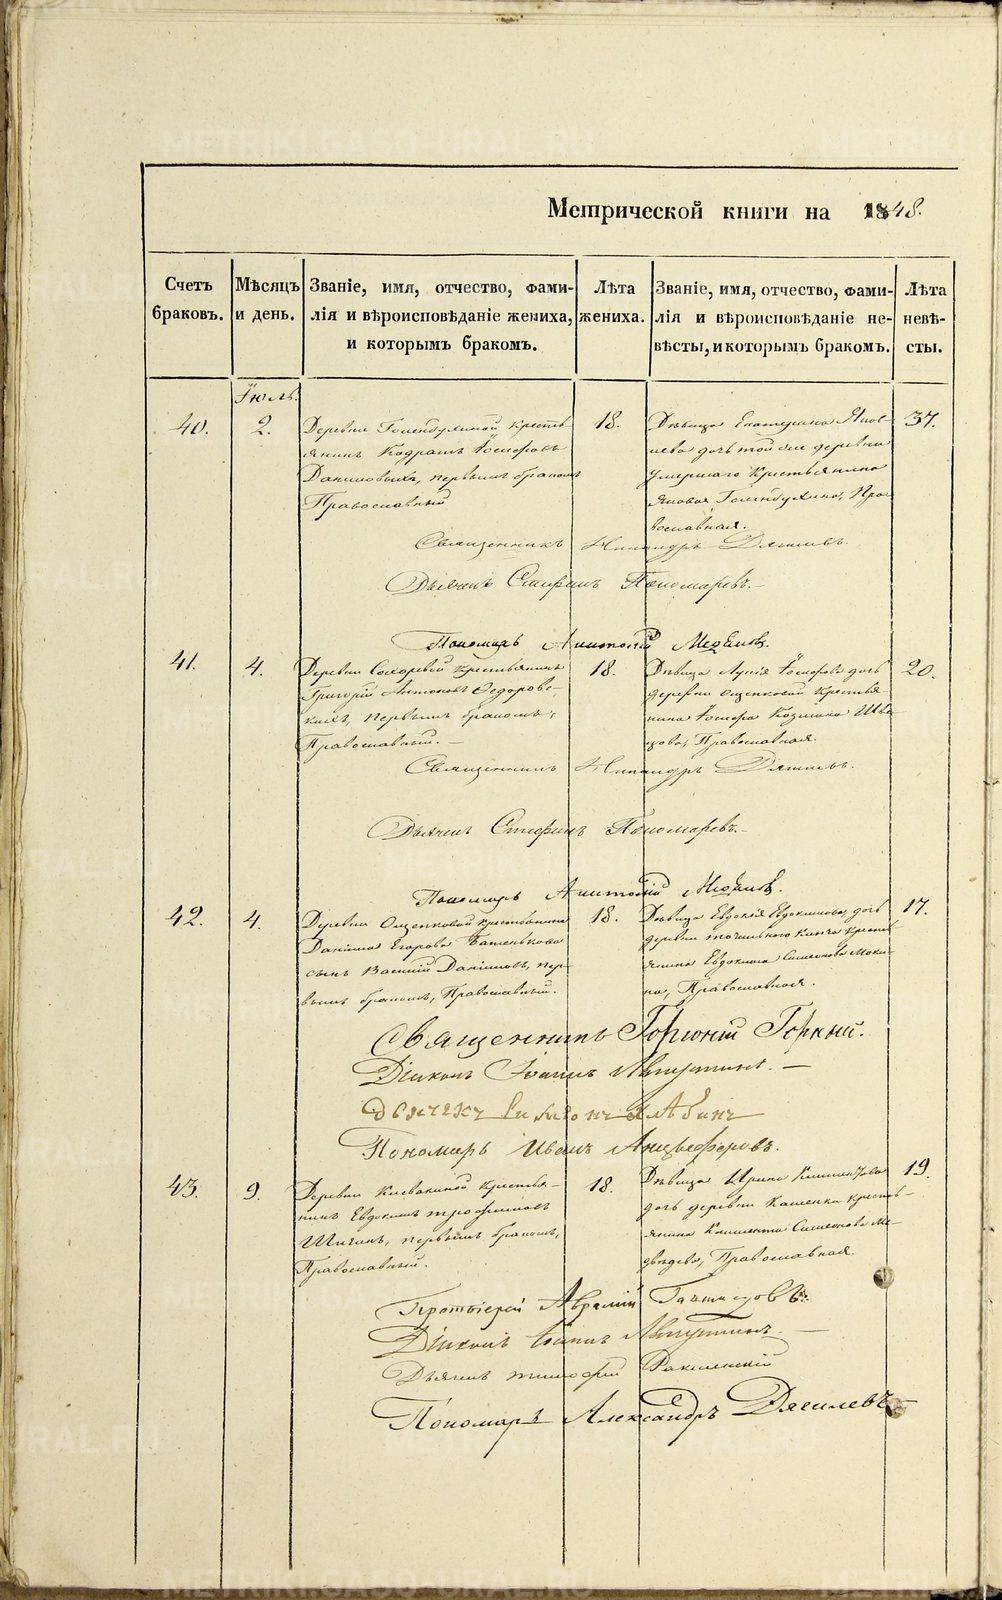 Метрической книги на 1848.
Счетъ браковъ.
Мѣсяцъ и день.
Званіе, имя, отчество, фами-
лія и вѣроисповѣданіе жениха,
и которымъ бракомъ.
Лѣта жениха.
Званіе, имя, отчество, фами-
лія и вѣроисповѣданіе не-
вѣсты, и которымъ бракомъ.
Лѣта невѣ-
сты.
Іюль.
40.
2.
Деревни Голендухиной кресть
янинъ Кодратъ Іосифовъ
Даниловыхъ, первымъ бракомъ
Православный
18.
Дѣвица Екатерина Яков-
лева дочь той же деревни
умершаго крестьянина
Якова Голендухина, Пра-
вославная.
37.
Священникъ Никандръ Дягилевъ.
Дьячекъ Стефанъ Пономаревъ.
Пономарь Анатолій
41.
4.
Деревни крестьянинъ
Григорій Антоновъ Федоровс-
кихъ, первымъ бракомъ,
Православный.
18.
Дѣвица Іосифова дочь
деревни Ощепковой крестья-
нина Іосифа Козмина Шве-
цова, Православная.
20.
Священникъ Никандръ Дягилевъ.
Дьячекъ Стефанъ Пономаревъ.
Пономарь Анатолій
42.
4.
Деревни Ощепковой крестьянина
Даніила Егорова Батенькова
сынъ Василій Даніиловъ, пер-
вымъ бракомъ, Православный.
18.
Дѣвица Евдокія Евдокимова, дочь
деревни Точильнаго ключа кресть
янина Евдокима Симеонова Моки-
на, Православная.
17.
Священникъ Горгоній Горный.
Діаконъ Іоаннъ Августинъ.
Дьячекъ
Пономарь Иванъ Анцыферовъ.
43.
9.
Деревни крестья-
нинъ Евдокимъ Трофимовъ
первымъ бракомъ,
Православный.
18.
Дѣвица Ирина Климентова
дочь деревни Каменки кресть-
янина Климента Симеонова Ме-
двѣдева, Православная.
19.
Протоіерей Аврамій
Діаконъ Іоаннъ Августинъ
Дьячекъ Тимофей
Пономарь Александръ Дягилевъ
METRIKI.GASO-URAL.RU